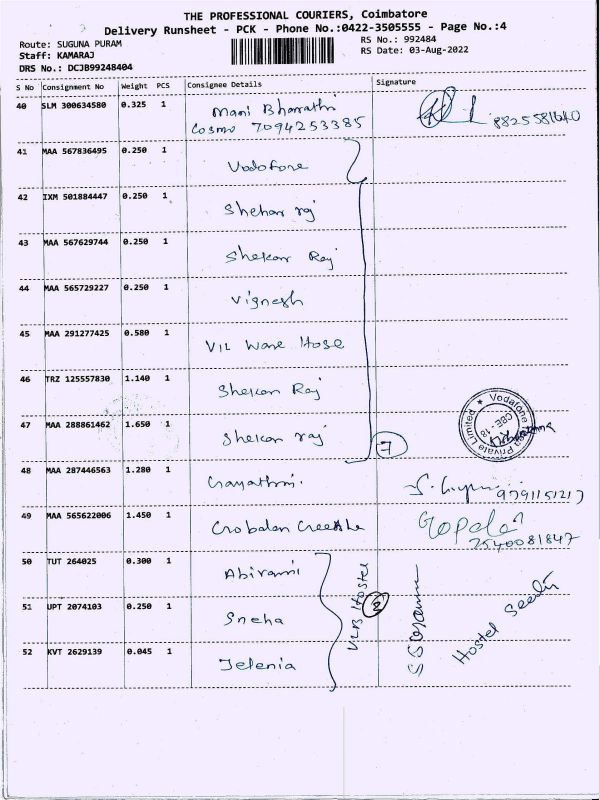 THE PROFESSIONAL COURIERS, Coimbatore
Delivery Runsheet - PCK - Phone No.:0422-3505555 - Page No.:4
Route: SUGUNA PURAM
RS No.: 992484
Staff: KAMARAJ
RS Date: 03-Aug-2022
DRS No.: DCJB99248404
S No Consignment No Weight PCS Consignee Details Signature
40 SLM 300634580 0.325 1 Mani Bharathi
Cosmo 7094253385 8825581640
41 MAA 567836495 0.250 1 Vodofone
42 IXM 501884447 0.250 1 Shehar raj
43 MAA 567629744 0.250 1 Shekar Raj
44 MAA 565729227 0.250 1 Vignesh
45 MAA 291277425 0.580 1 VIL Ware Hose
46 TRZ 125557830 1.140 1 Shekar Raj
47 MAA 288861462 1.650 1 Shekar raj 7
Vodafone
Private Limited
CBE - 18
48 MAA 287446563 1.280 1 Gayathri. 9791151217
49 MAA 565622006 1.450 1 Gopal
2540081847
50 TUT 264025 0.300 1 Abirami
51 UPT 2074103 0.250 1 Sneha
VLB Hostel 2
Hostel
52 KVT 2629139 0.045 1 Jelenia